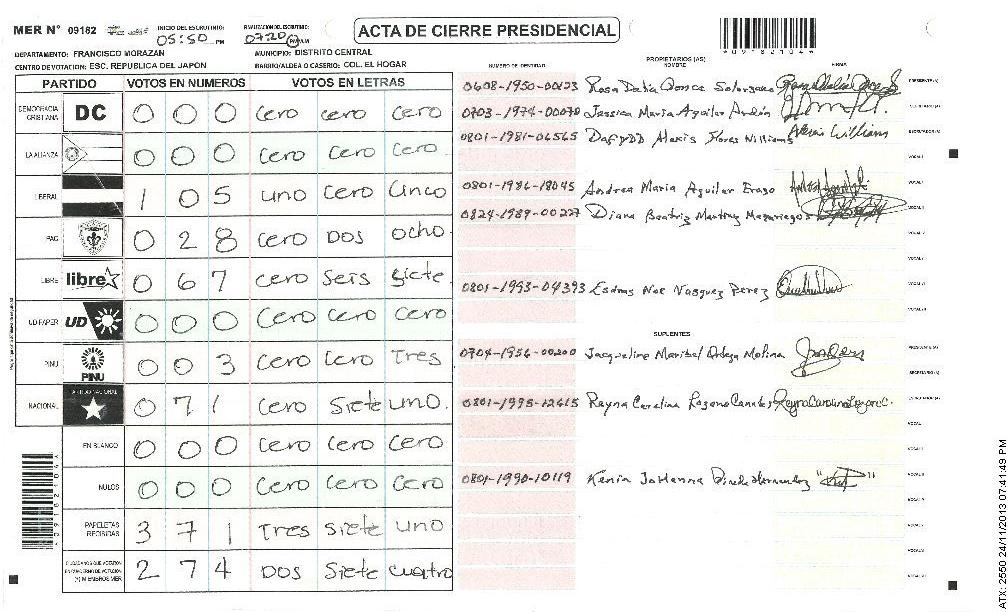 MER Nº 09182 INICIO DEL ESCRUTINIO: 05:50 PM 07:20 ACTA DE CIERRE PRESIDENCIAL
DEPARTAMENTO: FRANCISCO MORAZAN MUNICIPIO: DISTRITO CENTRAL
CENTRO DE VOTACION: ESC. REPUBLICA DEL JAPÓN BARRIO/ALDEA O CASERIO: COL. EL HOGAR
PARTIDO VOTOS EN NUMEROS VOTOS EN LETRAS
DEMOCRACIA CRISTIANA DC 0 0 0 cero cero cero
LA ALIANZA 0 0 0 cero cero cero
LIBERAL 1 0 5 uno cero cinco
PAC 0 2 8 cero DOS ocho
LIBRE libre 0 6 7 cero seis siete
UD FAPER UD 0 0 0 cero cero cero
PINU PINU 0 0 3 cero cero Tres
NACIONAL PARTIDO NACIONAL 0 7 1 cero siete uno.
EN BLANCO 0 0 0 cero cero cero
NULOS 0 0 0 cero cero cero
PAPELETAS RECIBIDAS 3 7 1 Tres siete uno
2 7 4 DOS siete cuatro
NUMERO DE IDENTIDAD PROPIETARIOS (AS) NOMBRE FIRMA
0608-1950-00123 Rosa Dalia
0703-1974-00070 Jessica Maria Aguilar
0801-1981-06565 Alexis Flores Williams Alexis Williams
0801-1986-18045 Andrea Maria Aguilar Erazo
0824-1989-00227 Diana Beatriz Martinez
0801-1993-04393 Esdras Noe Vasquez Perez
SUPLENTES
0704-1956-00200 Jacqueline Maribel Ortega Molina
0801-1995-12615 Reyna Carolina Lozano Canales
0801-1990-10119 Kenia Johanna
ATX: 2550 24/11/2013 07:41:49 PM